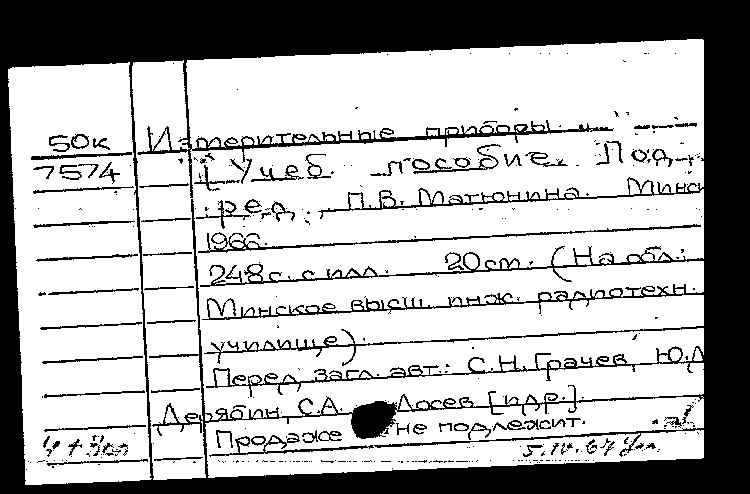 50к Измерительные приборы и
7574 [Учеб. пособие. Под
ред. П.В. Матюнина. Минск
1966.
248с. с илл. 20см. (На обл.:
Минское высш. инж. радиотехн.
училище).
Перед загл. авт.: С.Н. Грачев, Ю.Д
Дерябин, С.А. Лосев [и др.].
Продаже не подлежит.
5.IV.67